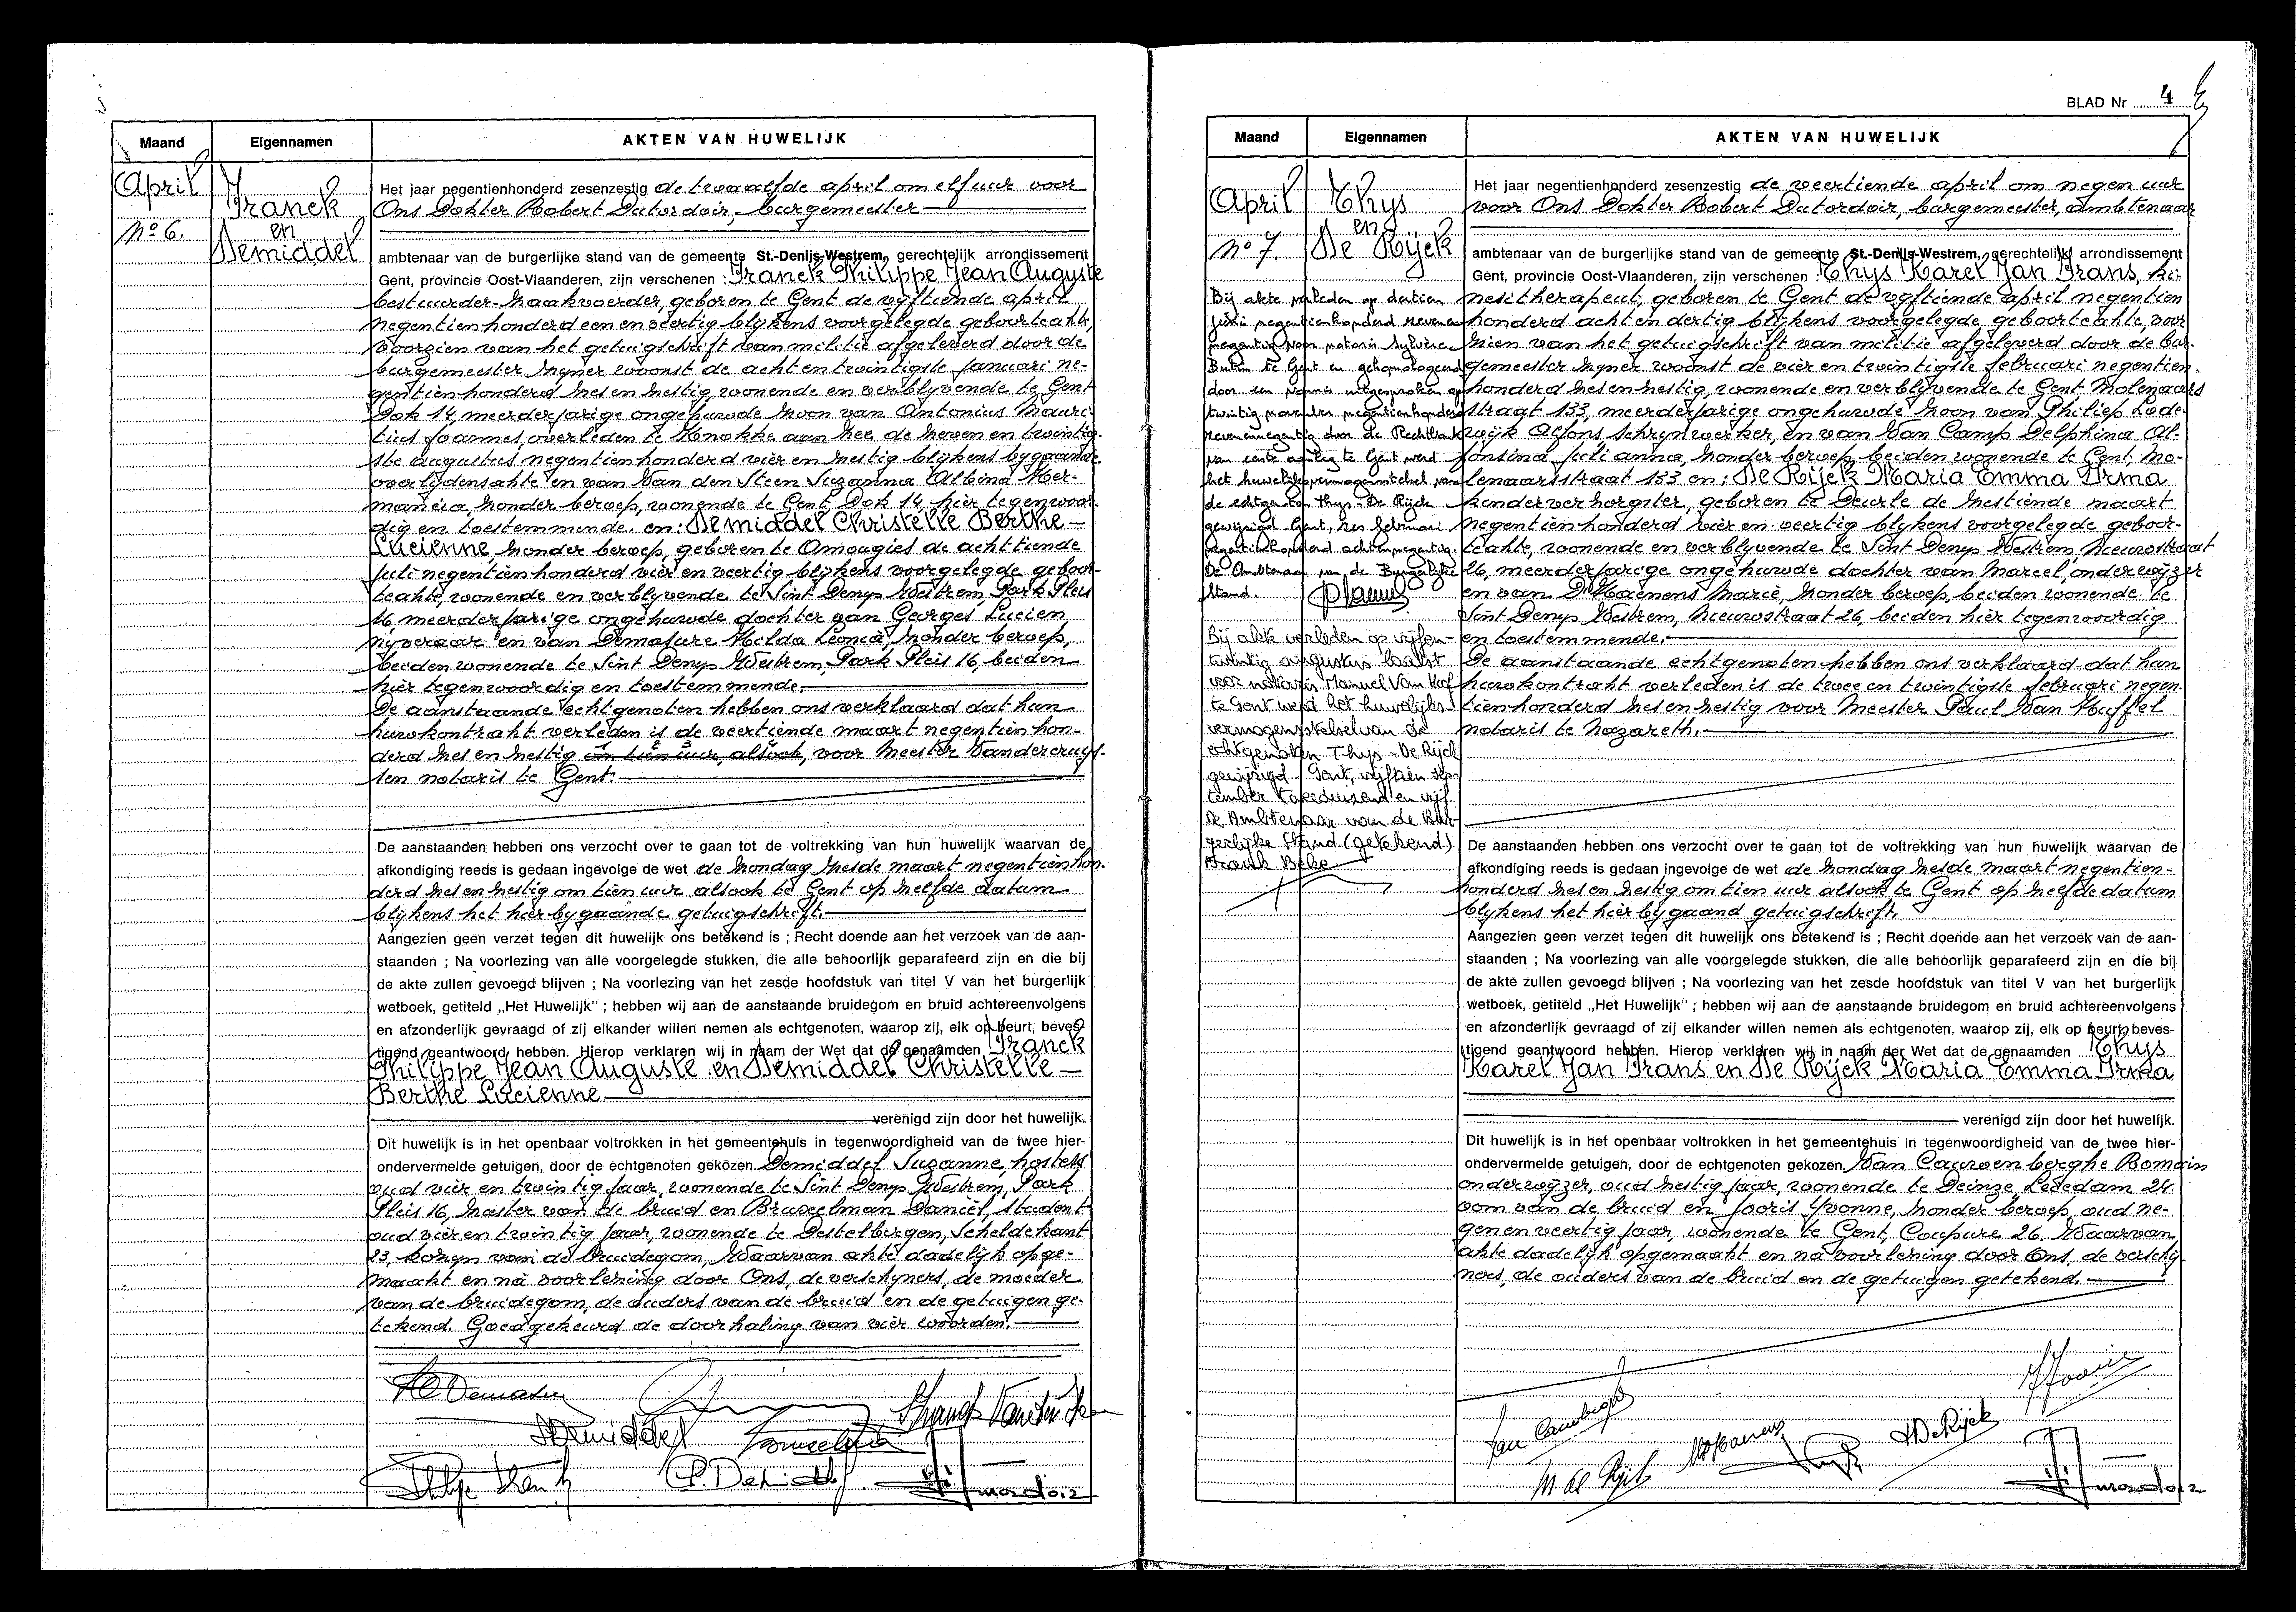 Maand
Eigennamen
AKTEN VAN HUWELIJK
April
Nº 6.
Franck
en
Demiddel
Het jaar negentienhonderd zesenzestig de twaalfde april om elf uur voor
Ons Dokter Robert Dutordoir, burgemeester
ambtenaar van de burgerlijke stand van de gemeente St.-Denijs-Westrem, gerechtelijk arrondissement
Gent, provincie Oost-Vlaanderen, zijn verschenen : Franck Philippe Jean Auguste
bestuurder-zaakvoerder, geboren te Gent de vijftiende april
negentienhonderd een en veertig blijkens voorgelegde geboorteakte,
voorzien van het getuigschrift van militie afgeleverd door de
burgemeester zijner woonst de acht en twintigste januari ne-
gentienhonderd zes en zestig, wonende en verblijvende te Gent
Dok 14, meerderjarige ongehuwde zoon van Antonius Mauri-
tius Joannes, overleden te Knokke aan Zee de zeven en twintig-
ste augustus negentienhonderd vier en zestig blijkens bijgaande
overlijdensakte en van Van den Steen Suzanna Albina Her-
mancia, zonder beroep, wonende te Gent, Dok 14 hier tegenwoor-
dig en toestemmende. en: Demiddel Christelle Berthe
Lucienne, zonder beroep, geboren te Amougies de achttiende
juli negentienhonderd vier en veertig blijkens voorgelegde geboor-
teakte, wonende en verblijvende te Sint Denys Westrem, Park Pleis
16, meerderjarige ongehuwde dochter van Georges Lucien,
nijveraar en van Demasure Hilda Leonia, zonder beroep,
beiden wonende te Sint Denys Westrem, Park Pleis 16, beiden
hier tegenwoordig en toestemmende.
De aanstaande echtgenoten hebben ons verklaard dat hun
huwkontrakt verleden is de veertiende maart negentienhon-
derd zes en zestig om tien uur, alsook, voor Meester Vandercruys-
sen notaris te Gent.
De aanstaanden hebben ons verzocht over te gaan tot de voltrekking van hun huwelijk waarvan de
afkondiging reeds is gedaan ingevolge de wet de zondag zesde maart negentienhon-
derd zes en zestig om tien uur alsook te Gent op zelfde datum
blijkens het hier bijgaande getuigschrift.
Aangezien geen verzet tegen dit huwelijk ons betekend is ; Recht doende aan het verzoek van de aan-
staanden ; Na voorlezing van alle voorgelegde stukken, die alle behoorlijk geparafeerd zijn en die bij
de akte zullen gevoegd blijven ; Na voorlezing van het zesde hoofdstuk van titel V van het burgerlijk
wetboek, getiteld „Het Huwelijk" ; hebben wij aan de aanstaande bruidegom en bruid achtereenvolgens
en afzonderlijk gevraagd of zij elkander willen nemen als echtgenoten, waarop zij, elk op beurt, beves-
tigend geantwoord hebben. Hierop verklaren wij in naam der Wet dat de genaamden Franck
Philippe Jean Auguste en Demiddel Christelle
Berthe Lucienne
verenigd zijn door het huwelijk.
Dit huwelijk is in het openbaar voltrokken in het gemeentehuis in tegenwoordigheid van de twee hier-
ondervermelde getuigen, door de echtgenoten gekozen Demiddel Suzanne, hostess
oud vier en twintig jaar, wonende te Sint Denys Westrem, Park
Pleis 16, zuster van de bruid en Bruselman Daniël, student
oud vier en twintig jaar, wonende te Destelbergen, Scheldekant
23, kozijn van de bruidegom, Waarvan akte dadelijk opge-
maakt en na voorlezing door Ons, de verschijners, de moeder
van de bruidegom, de ouders van de bruid en de getuigen ge-
tekend. Goedgekeurd de doorhaling van vier woorden.
BLAD Nr 4
Maand
Eigennamen
AKTEN VAN HUWELIJK
April
Nº 7.
Thys
en
De Rijck
Bij akte verleden op dertien
juni negentienhonderd zevenen
negentig voor notaris Sylvère
Buten te Gent en gehomologeerd
door een vonnis uitgesproken op
twintig november negentienhonderd
zevenennegentig door de Rechtbank
van eerste aanleg te Gent werd
het huwelijksvermogensstelsel van
de echtgenoten Thys - De Rijck
gewijzigd. Gent, zes februari
negentienhonderd achtennegentig.
De Ambtenaar van de Burgerlijke
Stand.
Bij akte verleden op vijfen-
twintig augustus laatst
voor notaris Manuel Van Hoof
te Gent werd het huwelijks-
vermogensstelsel van de
echtgenoten Thys - De Rijck
gewijzigd. Gent, vijftien sep-
tember tweeduizend en vijf.
De Ambtenaar van de Bur-
gerlijke Stand (getekend)
Frank Beke
Het jaar negentienhonderd zesenzestig de veertiende april om negen uur
voor Ons Dokter Robert Dutordoir, burgemeester, ambtenaar
ambtenaar van de burgerlijke stand van de gemeente St.-Denijs-Westrem, gerechtelijk arrondissement
Gent, provincie Oost-Vlaanderen, zijn verschenen : Thys Karel Jan Frans, ki-
nesitherapeut, geboren te Gent de vijftiende april negentien
honderd acht en dertig blijkens voorgelegde geboorteakte, voor
zien van het getuigschrift van militie afgeleverd door de bur-
gemeester zijner woonst de vier en twintigste februari negentien-
honderd zes en zestig, wonende en verblijvende te Gent, Molenaars
straat 133, meerderjarige ongehuwde zoon van Philiep Lode-
wijk Alfons, schrijnwerker, en van Van Camp Delphina Al-
fonsina Julianna, zonder beroep, beiden wonende te Gent, Mo-
lenaarsstraat 133 en: De Rijck Maria Emma Irma
kinderverzorgster, geboren te Deurle de zestiende maart
negentienhonderd vier en veertig blijkens voorgelegde geboor-
teakte, wonende en verblijvende te Sint Denys Westrem, Nieuwstraat
26, meerderjarige ongehuwde dochter van Marcel, onderwijzer
en van D'Haenens Marie, zonder beroep, beiden wonende te
Sint Denys Westrem, Nieuwstraat 26, beiden hier tegenwoordig
en toestemmende.
De aanstaande echtgenoten hebben ons verklaard dat hun
huwkontrakt verleden is de twee en twintigste februari negen-
tienhonderd zes en zestig voor Meester Paul Van Huffel
notaris te Nazareth.
De aanstaanden hebben ons verzocht over te gaan tot de voltrekking van hun huwelijk waarvan de
afkondiging reeds is gedaan ingevolge de wet de zondag zesde maart negentien-
honderd zes en zestig om tien uur alsook te Gent op zelfde datum
blijkens het hier bijgaand getuigschrift.
Aangezien geen verzet tegen dit huwelijk ons betekend is ; Recht doende aan het verzoek van de aan-
staanden ; Na voorlezing van alle voorgelegde stukken, die alle behoorlijk geparafeerd zijn en die bij
de akte zullen gevoegd blijven ; Na voorlezing van het zesde hoofdstuk van titel V van het burgerlijk
wetboek, getiteld „Het Huwelijk" ; hebben wij aan de aanstaande bruidegom en bruid achtereenvolgens
en afzonderlijk gevraagd of zij elkander willen nemen als echtgenoten, waarop zij, elk op beurt, beves-
tigend geantwoord hebben. Hierop verklaren wij in naam der Wet dat de genaamden Thys
Karel Jan Frans en De Rijck Maria Emma Irma
verenigd zijn door het huwelijk.
Dit huwelijk is in het openbaar voltrokken in het gemeentehuis in tegenwoordigheid van de twee hier-
ondervermelde getuigen, door de echtgenoten gekozen Van Cauwenberghe Romain
onderwijzer, oud zestig jaar, wonende te Deinze, Lededam 24.
oom van de bruid en Joris Yvonne, zonder beroep, oud ne-
gen en veertig jaar, wonende te Gent, Coupure 26. Waarvan
akte dadelijk opgemaakt en na voorlezing door Ons, de verschij-
ners, de ouders van de bruid en de getuigen getekend.